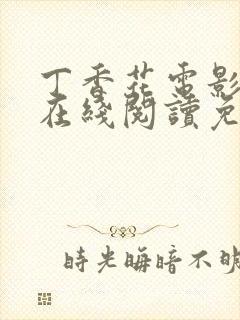 丁香花電影
在綫閱讀免
時光晦暗不明